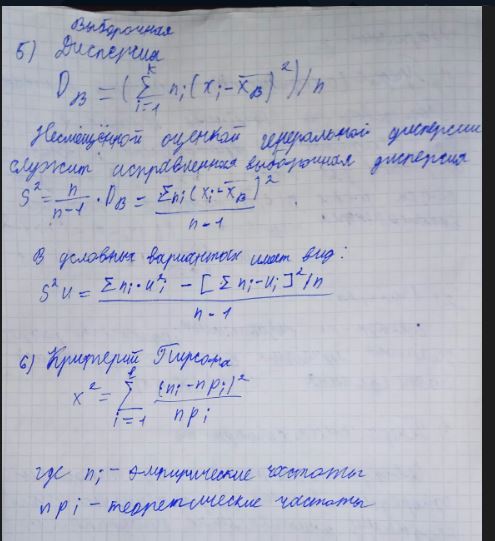 Выборочная
5) Дисперсия
D_B = (∑_{i=1}^{k} n_i (x_i - x̄_B)^2)/n
Несмещённой оценкой генеральной дисперсии
служит исправленная выборочная дисперсия
S^2 = n/(n-1) · D_B = ∑n_i (x_i - x̄_B)^2/(n-1)
В условных вариантах имеет вид:
s^2 u = (∑ n_i · u^2_i - [∑ n_i - u_i]^2/n)/(n-1)
6) Критерий Пирсона
x^2 = ∑_{i=1}^{l} (n_i - n p_i)^2/(n p_i)
где n_i - эмпирические частоты
n p_i - теоретические частоты